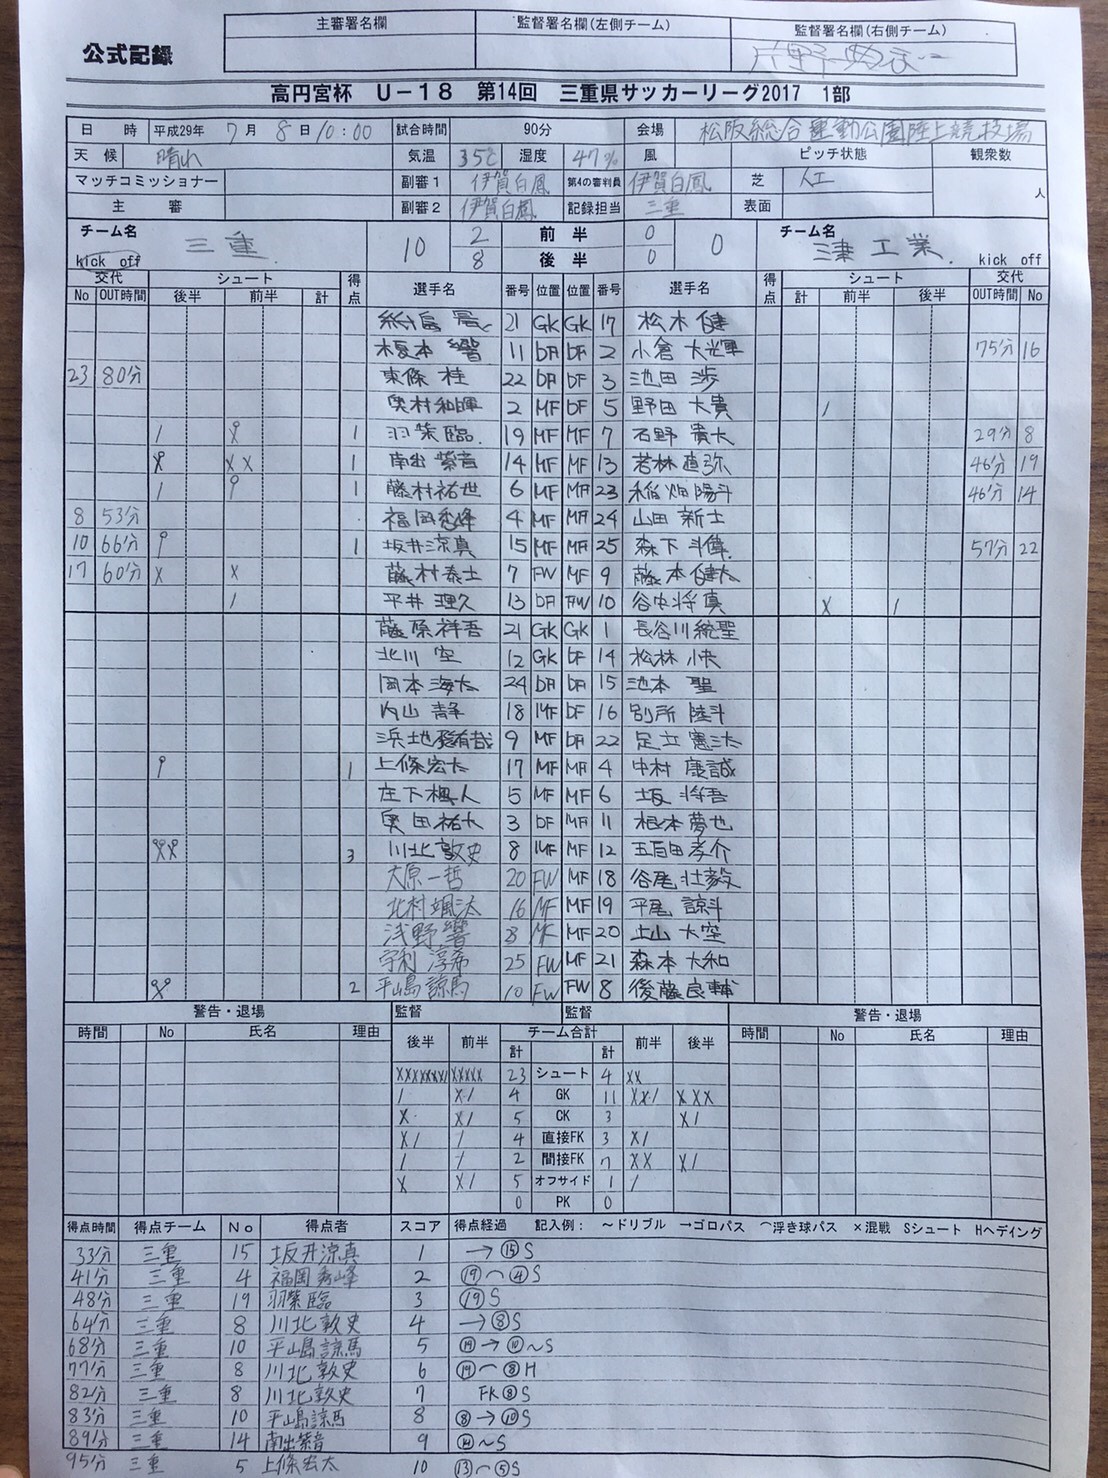 主審署名欄 監督署名欄(左側チーム) 監督署名欄(右側チーム)
公式記録
高円宮杯 U-18 第14回 三重県サッカーリーグ2017 1部
日 時 平成29年 7月 8日 10:00 試合時間 90分 会場 松阪総合運動公園陸上競技場
天候 晴れ 気温 35℃ 湿度 47% 風 ピッチ状態 観衆数
マッチコミッショナー 副審1 伊賀白鳳 第4の審判員 伊賀白鳳 芝 人工 人
主 審 副審2 伊賀白鳳 記録担当 三重 表面
チーム名 三重 10 2 前 半 0 0 チーム名 工業
kick off 8 後 半 0 kick off
交代 シュート 得点 選手名 番号 位置 位置 番号 選手名 得点 シュート 交代
No OUT時間 後半 前半 計 計 前半 後半 OUT時間 No
21 GK GK 17 松木 健
榎本 響 11 DF DF 2 小倉 大光輝 75分 16
23 80分 東條 桂 22 DF DF 3 池田 渉
奥村和暉 2 MF DF 5 野田 大貴 /
/ 1 羽柴 臨 19 MF MF 7 石野 貴大 29分 8
x x 1 南出 紫音 14 MF MF 13 若林 直弥 46分 19
/ 1 藤村祐世 6 MF MF 23 稲畑 陽斗 46分 14
8 53分 福岡秀峰 4 MF MF 24 山田 新士
10 66分 1 坂井涼真 15 MF MF 25 森下 57分 22
17 60分 x x 藤村泰士 7 FW MF 9 藤本 健太
/ 平井 理久 13 DF FW 10 谷中将真 x /
藤原祥吾 21 GK GK 1 長谷川統聖
北川 空 12 GK DF 14 松林
岡本 海太 24 DF DF 15 池本 聖
内山 静 18 MF DF 16 別所 陸斗
浜地 9 MF DF 22 足立 憲汰
1 上條宏太 17 MF MF 4 中村 康誠
庄下 楓人 5 MF MF 6 坂 将吾
奥田祐大 3 DF MF 11 根本 夢也
3 川北敦史 8 MF MF 12 五百田 孝介
大原一哲 20 FW MF 18 谷尾 壮毅
北村颯汰 16 MF MF 19 平尾 諒斗
浅野響 8 MF MF 20 上山 大空
宇利 淳希 25 FW MF 21 森本 大和
2 平山島諒馬 10 FW FW 8 後藤良輔
警告・退場 監督 監督 警告・退場
時間 No 氏名 理由 後半 前半 チーム合計 前半 後半 時間 No 氏名 理由
計 計
xxxxxx/ xxxxx 23 シュート 4 xx
/ x/ 4 GK 11 xx/ xxx
x x/ 5 CK 3 x/
x/ / 4 直接FK 3 x/
/ / 2 間接FK 7 xx x/
x x/ 5 オフサイド 1 /
0 PK 0
得点時間 得点チーム No 得点者 スコア 得点経過 記入例: ～ドリブル →ゴロパス ⌒浮き球パス ×混戦 Sシュート Hヘディング
33分 三重 15 坂井涼真 1 →⑮S
41分 三重 4 福岡秀峰 2 ⑲⌒④S
48分 三重 19 羽柴臨 3 ⑲S
64分 三重 8 川北敦史 4 →⑧S
68分 三重 10 平山島諒馬 5 ⑭→⑩～S
77分 三重 8 川北敦史 6 ⑭⌒⑧H
82分 三重 8 川北敦史 7 FK⑧S
83分 三重 10 平山島諒馬 8 ⑧→⑩S
89分 三重 14 南出紫音 9 ⑭～S
95分 三重 5 上條宏太 10 ⑬⌒⑤S